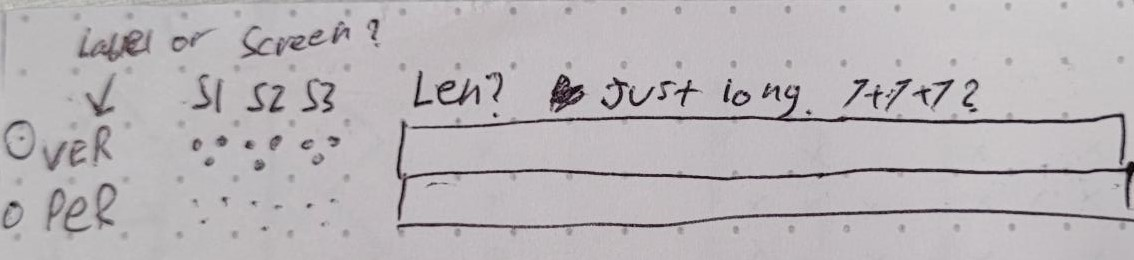 Label or Screen?
S1 S2 S3 Len? Just long. 7+7+7?
OVER
O PER